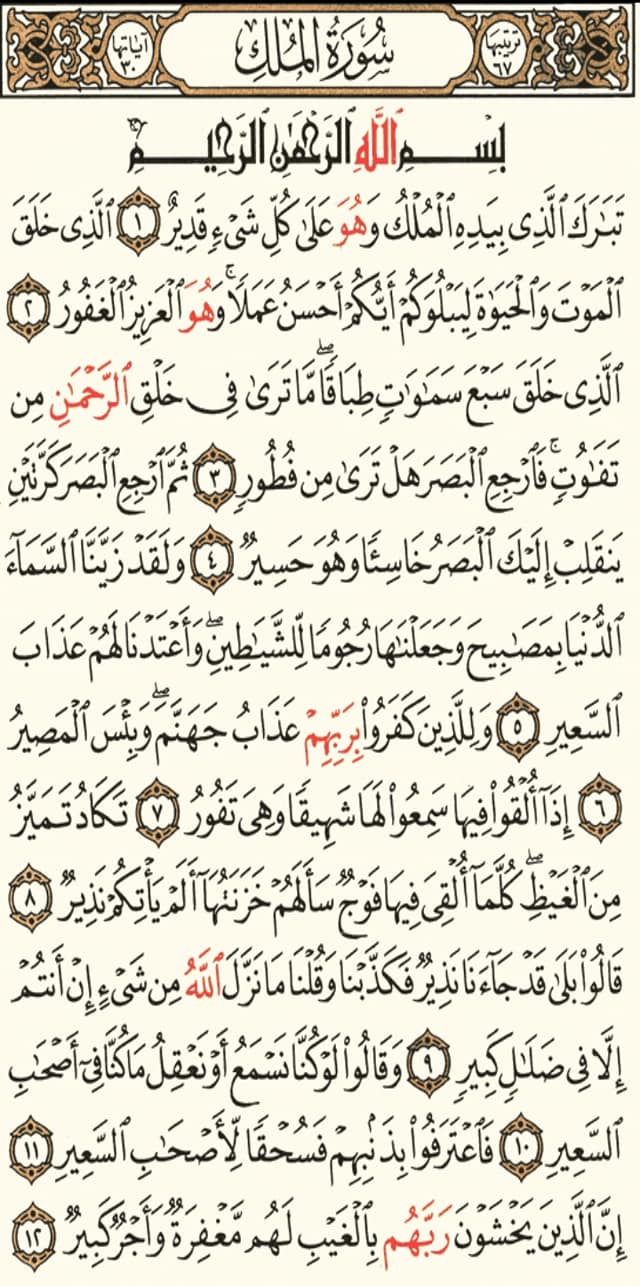 ترتيبها ٦٧ سُورَةُ الْمُلْكِ آياتها ٣٠
بِسْمِ ٱللَّهِ ٱلرَّحْمَٰنِ ٱلرَّحِيمِ
تَبَٰرَكَ ٱلَّذِى بِيَدِهِ ٱلْمُلْكُ وَهُوَ عَلَىٰ كُلِّ شَىْءٍ قَدِيرٌ ١ ٱلَّذِى خَلَقَ
ٱلْمَوْتَ وَٱلْحَيَوٰةَ لِيَبْلُوَكُمْ أَيُّكُمْ أَحْسَنُ عَمَلًا ۚ وَهُوَ ٱلْعَزِيزُ ٱلْغَفُورُ ٢
ٱلَّذِى خَلَقَ سَبْعَ سَمَٰوَٰتٍ طِبَاقًا ۖ مَّا تَرَىٰ فِى خَلْقِ ٱلرَّحْمَٰنِ مِن
تَفَٰوُتٍ ۚ فَٱرْجِعِ ٱلْبَصَرَ هَلْ تَرَىٰ مِن فُطُورٍ ٣ ثُمَّ ٱرْجِعِ ٱلْبَصَرَ كَرَّتَيْنِ
يَنقَلِبْ إِلَيْكَ ٱلْبَصَرُ خَاسِئًا وَهُوَ حَسِيرٌ ٤ وَلَقَدْ زَيَّنَّا ٱلسَّمَآءَ
ٱلدُّنْيَا بِمَصَٰبِيحَ وَجَعَلْنَٰهَا رُجُومًا لِّلشَّيَٰطِينِ ۖ وَأَعْتَدْنَا لَهُمْ عَذَابَ
ٱلسَّعِيرِ ٥ وَلِلَّذِينَ كَفَرُوا۟ بِرَبِّهِمْ عَذَابُ جَهَنَّمَ ۖ وَبِئْسَ ٱلْمَصِيرُ
٦ إِذَآ أُلْقُوا۟ فِيهَا سَمِعُوا۟ لَهَا شَهِيقًا وَهِىَ تَفُورُ ٧ تَكَادُ تَمَيَّزُ
مِنَ ٱلْغَيْظِ ۖ كُلَّمَآ أُلْقِىَ فِيهَا فَوْجٌ سَأَلَهُمْ خَزَنَتُهَآ أَلَمْ يَأْتِكُمْ نَذِيرٌ ٨
قَالُوا۟ بَلَىٰ قَدْ جَآءَنَا نَذِيرٌ فَكَذَّبْنَا وَقُلْنَا مَا نَزَّلَ ٱللَّهُ مِن شَىْءٍ إِنْ أَنتُمْ
إِلَّا فِى ضَلَٰلٍ كَبِيرٍ ٩ وَقَالُوا۟ لَوْ كُنَّا نَسْمَعُ أَوْ نَعْقِلُ مَا كُنَّا فِىٓ أَصْحَٰبِ
ٱلسَّعِيرِ ١٠ فَٱعْتَرَفُوا۟ بِذَنۢبِهِمْ فَسُحْقًا لِّأَصْحَٰبِ ٱلسَّعِيرِ ١١
إِنَّ ٱلَّذِينَ يَخْشَوْنَ رَبَّهُم بِٱلْغَيْبِ لَهُم مَّغْفِرَةٌ وَأَجْرٌ كَبِيرٌ ١٢